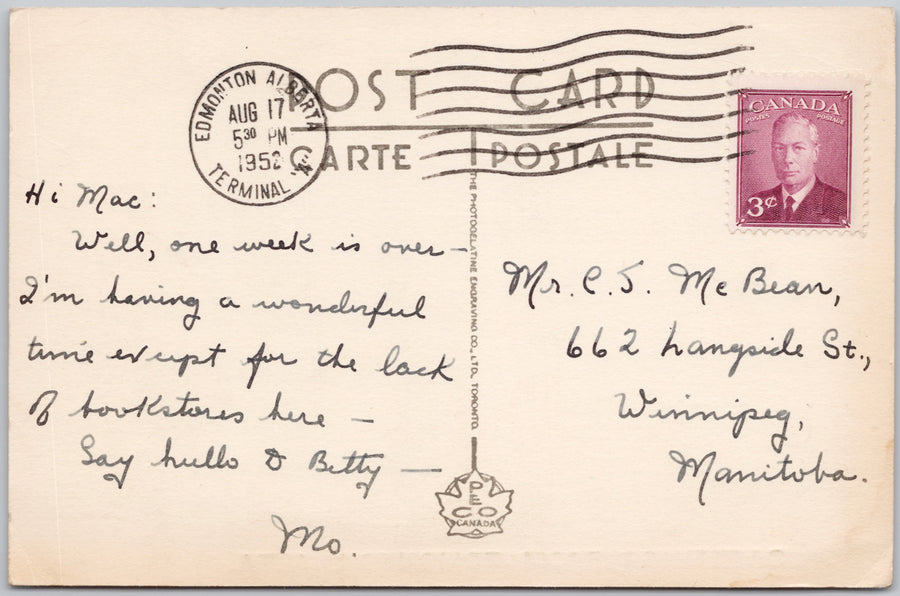 POST CARD
CARTE POSTALE
EDMONTON ALBERTA
AUG 17
5 30 PM
1952
TERMINAL "A"
CANADA
POSTES POSTAGE
3¢
Hi Mac:
Well, one week is over—
I'm having a wonderful
time except for the lack
of bookstores here —
Say hullo to Betty —
Mo.
THE PHOTOGELATINE ENGRAVING CO., LTD. TORONTO.
PECO
CANADA
Mr. C. S. McBean,
662 Langside St.,
Winnipeg,
Manitoba.